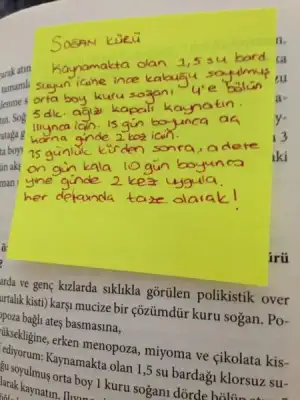 SOĞAN KÜRÜ
Kaynamakta olan 1,5 su bard.
suyun içine ince kabuğu soyulmuş
orta boy kuru soğanı 4'e bölün
5 dk. ağzı kapalı kaynatın.
Ilıyınca için. 15 gün boyunca aç
karna günde 2 kez için.
15 günlük kürden sonra, adete
on gün kala 10 gün boyunca
yine günde 2 kez uygula.
her defasında taze olarak!
arda ve genç kızlarda sıklıkla görülen polikistik over
urtalık kisti) karşı mucize bir çözümdür kuru soğan. Po-
poza bağlı ateş basmasına,
rüksekliğine, erken menopoza, miyoma ve çikolata kis-
ediyorum: Kaynamakta olan 1,5 su bardağı klorsuz su-
ğu soyulmuş orta boy 1 kuru soğanı dörde bölün
larak kaynatın.